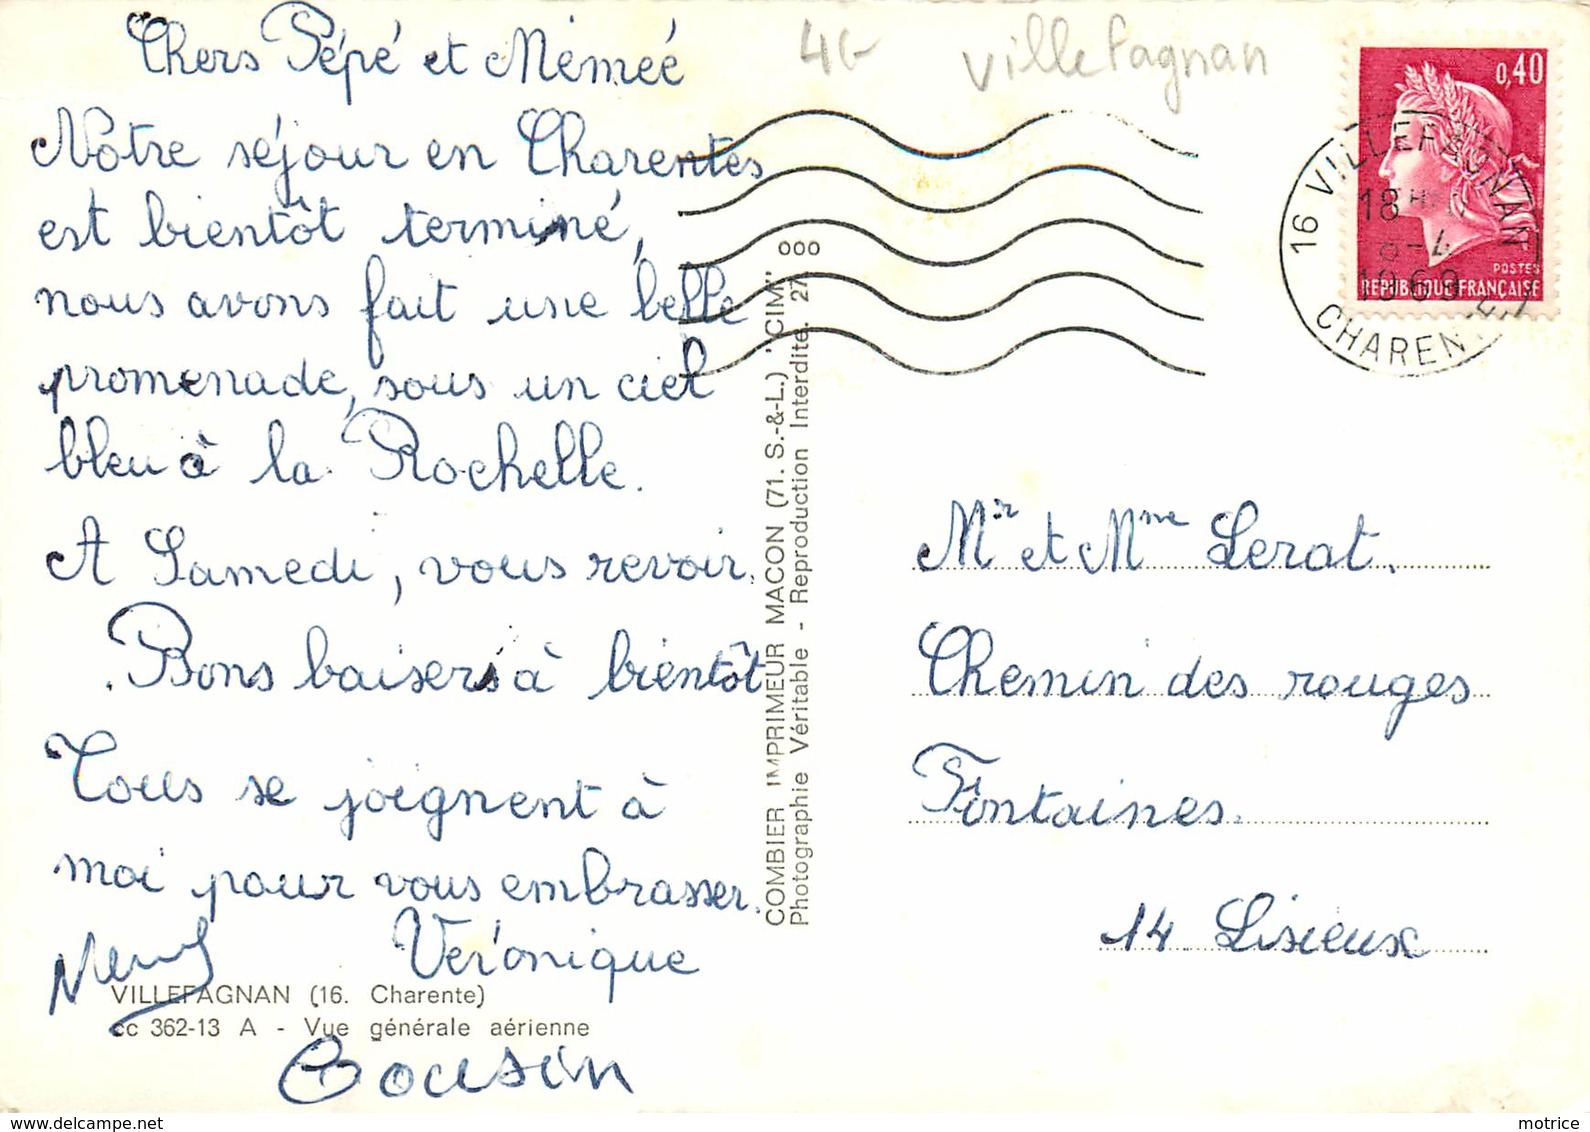 Chers Pépé et Mémeé
Notre séjour en Charentes
est bientôt terminé,
nous avons fait une belle
promenade, sous un ciel
bleu à la Rochelle.
A Samedi, vous revoir.
Bons baisers à bientôt
Tous se joignent à
moi pour vous embrasser.
Verónique
Cousin
VILLEFAGNAN (16. Charente)
cc 362-13 A - Vue générale aérienne
COMBIER IMPRIMEUR MACON (71. S.-&-L.) "CIM"
Photographie Véritable - Reproduction Interdite. 27
000
villefagnan
0,40
POSTES
REPUBLIQUE FRANÇAISE
16 VILLEFAGNAN
18 H
8-4
1969
CHARENTE
Mr et Mme Lerat.
Chemin des rouges
Fontaines.
14 Lisieux
motrice